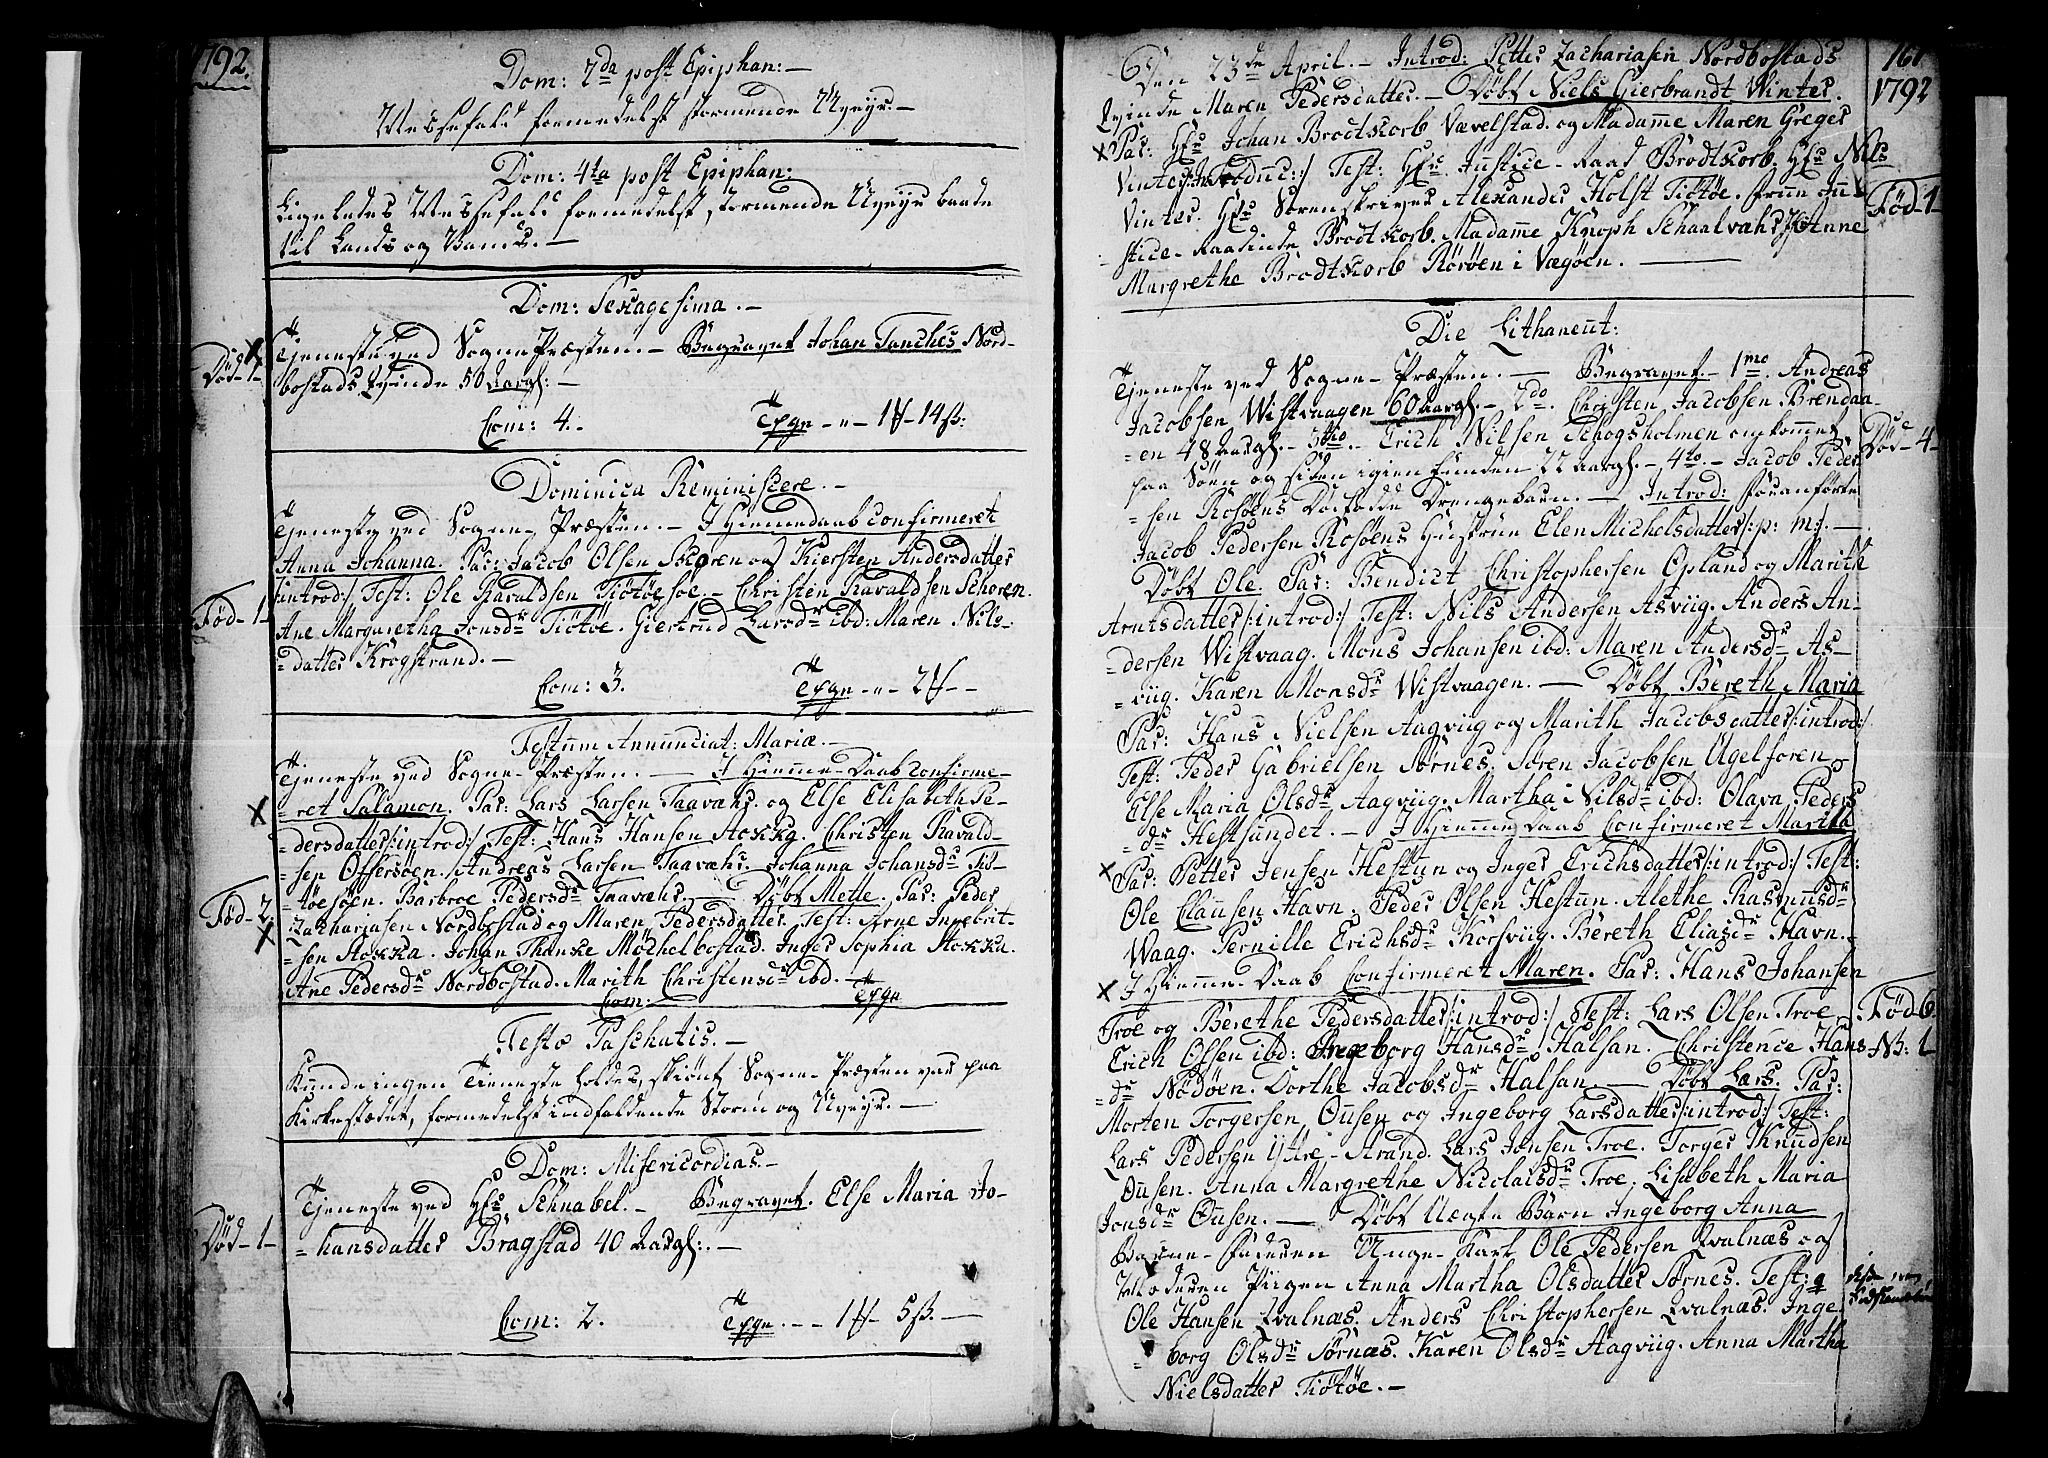 1792.
Dom: 7da post Epiphan: —
Messefald formedelst stormende Uveyr. —
Dom: 4ta post Epiphan:
Ligeledes Messefald formedelst stormende Uveyr baade
til Lands og Vands. —
Dom: Sexagesima. —
Tjeneste ved Sogne Præsten. — Begravet Johan Tanches Nord-
Død-1-
bostads Qvinde 50 Aargl: —
Com: 4. Tfgn - " - 1 14 ß:
Dominica Reminiscere. —
Tjeneste ved Sogne-Præsten. — I Hiemmedaab confirmeret
Anna Johanna. Par: Jacob Olsen Skoren og Kiersten Andersdatter
/:introd:/ Test: Ole Ravaldsen Tiötöe soe. — Christen Ravaldsen Schoren.
Fød-1-
Ane Margaretha Jonsdr Tiötöe. Giertrud Larsdr ibd: Maren Nils-
=datter Krogstrand. —
Com: 3. Tfgn - " - 2
Festum Annunciat: Mariæ. —
Tjeneste ved Sogne-Præsten. — I Hiemme-Daab confirme-
=ret Salamon. Par: Lars Larsen Taavær. og Else Elisabeth Pe-
=dersdatter/:introd:/ Test: Hans Hansen Stokka. Christen Ravald-
sen Offersøen. Andreas Larsen Taavær. Johanna Johansdr Tiö-
tøesøen. Barbroe Pedersdr Taavær. — Døbt Mette. Par: Peder
Fød-2
Zachariasen Nordbostad og Maren Pedersdatter. Test: Arne Ingebrit-
=sen Stokka. Johan Thanke Möchelbostad. Inger Sophia Stokka.
Ane Pedersdr Nordbostad. Marith Christensdr ibd. —
Com: Tfgn
Festo Paschatis. —
Kunde ingen Tieneste holdes, skiönt Sogne-Præsten var paa
Kirkestædet, formedelst indfaldende Storm og Uveyr. —
Dom: Misericordias. —
Tjeneste ved Hr: Schnabel. — Begravet. Else Maria Jo-
Død-1-
=hansdatter Bragstad 40 Aargl: —
Com: 2. Tfgn. - - 1 5 ß. —
161
1792
Den 23de April. — Introd: Petter Zachariasen Nordbostads
Qvinde Maren Pedersdatter. — Døbt Niels Gierbrandt Winter.
Par: Hr: Johan Brodtkorb Vævelstad. og Madamme Maren Greger
Vinter/:introduc:/ Test: Hr: Justice-Raad Brodtkorb. Hr: Nils
Vinter. Hr: Sorenskriver Alexander Holst Tiötöe. Frue Ju-
Fød-1-
stice-Raadinde Brodtkorb. Madamme Knoph Schaalvær. Anne
Margrethe Brodtkorb Rörøen i Vægöen. —
Die Lithaneut:
Tjeneste ved Sogne-Præsten. — Begravet- 1mo. Andreas
Jacobsen Wistvaagen 60 Aargl. — 2do. Christen Jacobsen Brendaa-
=en 48 Aargl. — 3tio. — Erich Nilsen Schogsholmen omkommet
Død-4-
paa Söen og siden igien funden 22 Aargl. — 4to. — Jacob Peder
=sen Rosöens Dödfödde Drengebarn. — Introd: Foranførte
Jacob Pedersen Rosöens Hustrue Elen Michelsdatter/:p: m:/. —
Døbt Ole. Par: Bendict Christophersen Opland og Marith
Arntsdatter/:introd:/ Test: Nils Andersen Asviig. Anders An-
=dersen Wistvaag. Mons Johansen ibd: Maren Andersdr As-
=viig. Karen Monsdr Wistvaagen. — Døbt Bereth Maria
Par: Hans Nielsen Aagviig og Marith Jacobsdatter/:introd:/
Test: Peder Gabrielsen Sörnes. Sören Jacobsen Ugelforen
Else Maria Olsdr Aagviig. Martha Nilsdr ibd: Olava Peders
=dr Hestsundet. — I Hiemme Daab Confirmeret Martha
Par: Petter Jensen Hestun og Inger Erichsdatter/:introd:/ Test:
Ole Clausen Havn. Peder Olsen Hestun. Alethe Rasmusdr
Waag. Pernille Erichsdr Korsviig. Bereth Eliasdr Havn. —
I Hiemme-Daab Confirmeret Maren. Par: Hans Johansen
Troe og Berethe Pedersdatter/:introd:/ Test: Lars Olsen Troe,
Fød 6.
Erich Olsen ibd: Ingeborg Hansdr Halsan. Christence Hans
NB: 1
=dr Nödöen. Dorthe Jacobsdr Halsan. — Døbt Lars. Par:
Morten Torgersen Ousen og Ingeborg Larsdatter/:introd:/ Test:
Lars Pedersen Yttre-Strand. Lars Jonsen Troe. Torger Knudsen
Ousen. Anna Margrethe Nicolaisdr Troe. Lisabeth Maria
Jonsdr Ousen. — Døbt Uegte Barn Ingeborg Anna
Barne-Faderen Unge-Karl Ole Pedersen Qvalnæs og
Moderen Piigen Anna Martha Olsdatter Sörnes. Test:
Ole Hansen Qvalnæs. Anders Christophersen Qvalnæs. Inge
borg Olsdr Sörnæs. Karen Olsdr Aagviig. Anna Martha
Nielsdatter Tiötöe. —